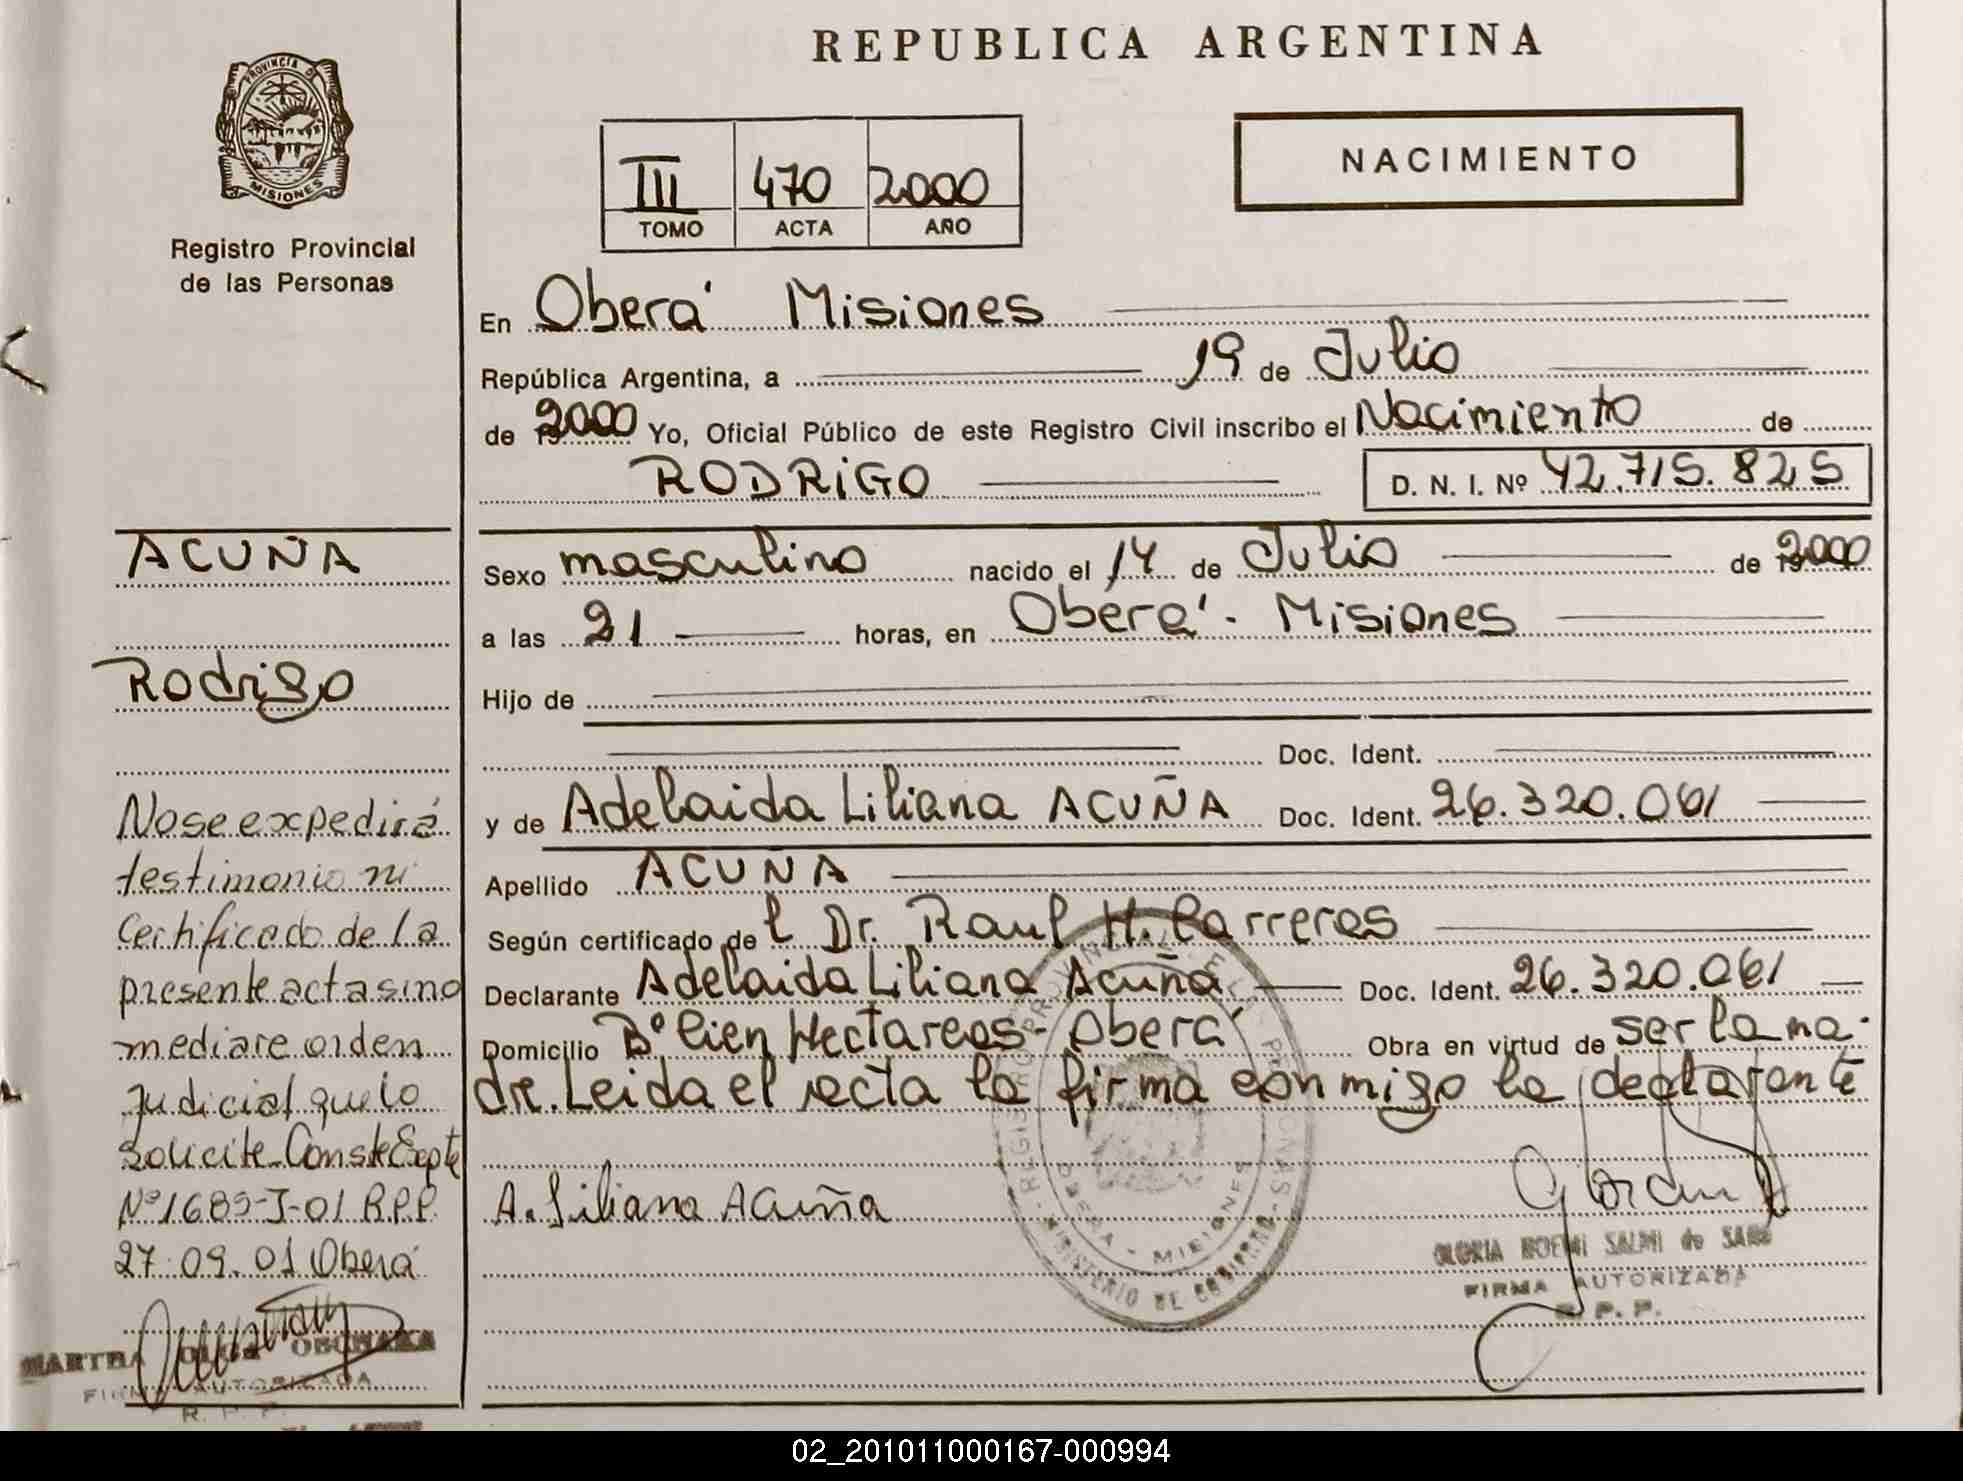 REPUBLICA ARGENTINA
PROVINCIA DE
MISIONES
Registro Provincial
de las Personas
III 470 2000
TOMO ACTA AÑO
NACIMIENTO
En Oberá Misiones
República Argentina, a 19 de Julio
de 2000 Yo, Oficial Público de este Registro Civil inscribo el Nacimiento de
RODRIGO D. N. I. Nº 42.715.825
Sexo masculino nacido el 14 de Julio de 2000
a las 21 horas, en Oberá - Misiones
Hijo de
Doc. Ident.
y de Adelaida Liliana ACUÑA Doc. Ident. 26.320.061
Apellido ACUÑA
Según certificado de l Dr. Raul H. Carreras
Declarante Adelaida Liliana Acuña Doc. Ident. 26.320.061
Domicilio Bº Cien Hectareas - Oberá Obra en virtud de ser la ma-
dre. Leida el acta la firma conmigo la declarante
A. Liliana Acuña
GLORIA NOEMI SALMI de
FIRMA AUTORIZADA
R. P. P.
OBERA - MISIONES
MINISTERIO DE GOBIERNO
ACUÑA
Rodrigo
No se expedirá
testimonio ni
Certificado de la
presente acta sino
mediare orden
Judicial que lo
solicite. Conste Expte
Nº 1689-J-01 R.P.P.
27.09.01 Oberá
MARTHA OLGA
FIRMA AUTORIZADA
R. P. P.
02_201011000167-000994